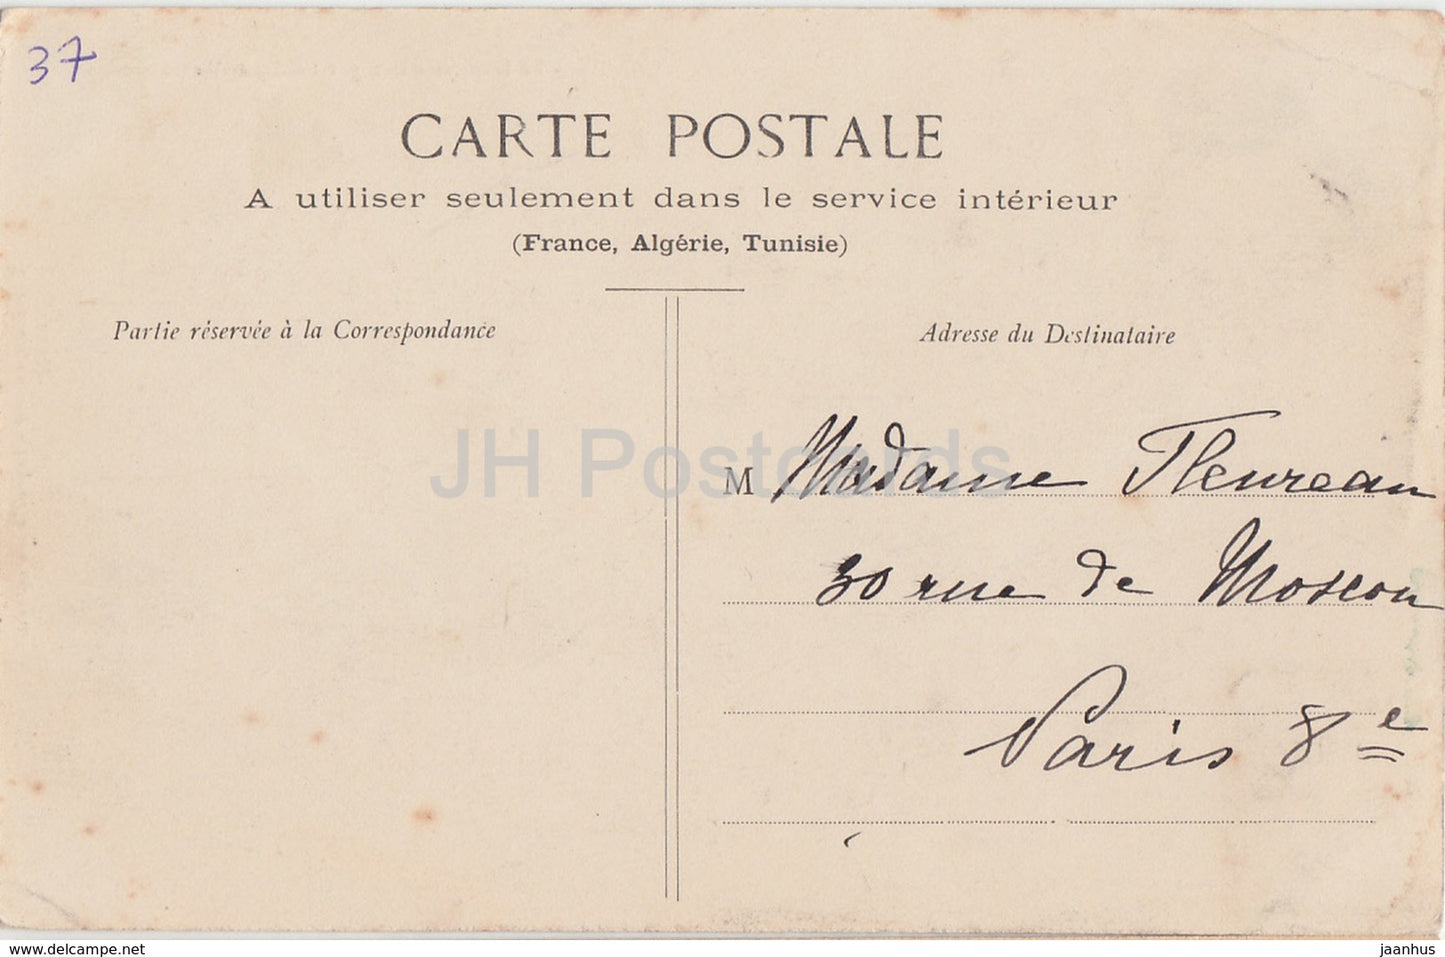 37
CARTE POSTALE
A utiliser seulement dans le service intérieur
(France, Algérie, Tunisie)
Partie réservée à la Correspondance
Adresse du Destinataire
JH Postcards
M Madame Fleureau
30 rue de Moscou
Paris 8e
www.delcampe.net
jaanhus